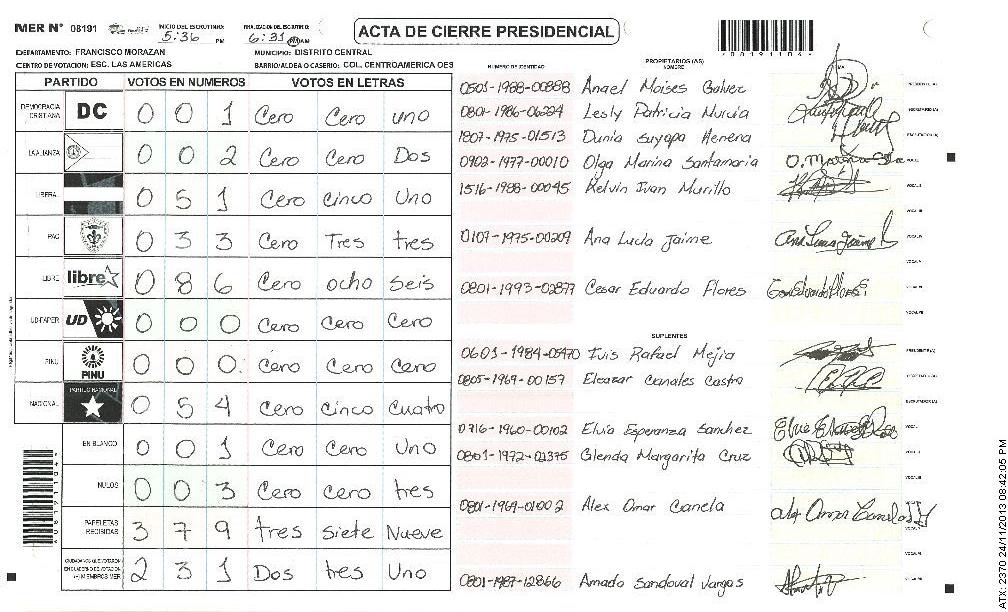 MER Nº 08191
INICIO DEL ESCRUTINIO: 5:36 PM
FINALIZACION DEL ESCRUTINIO: 6:31 PM AM
ACTA DE CIERRE PRESIDENCIAL
DEPARTAMENTO: FRANCISCO MORAZAN MUNICIPIO: DISTRITO CENTRAL
CENTRO DE VOTACION: ESC. LAS AMERICAS BARRIO/ALDEA O CASERIO: COL. CENTROAMERICA OES
PARTIDO VOTOS EN NUMEROS VOTOS EN LETRAS
DEMOCRACIA CRISTIANA DC 0 0 1 Cero Cero uno
LA ALIANZA 0 0 2 Cero Cero Dos
LIBERAL 0 5 1 Cero Cinco Uno
PAC 0 3 3 Cero Tres tres
LIBRE libre 0 8 6 Cero ocho seis
UD-FAPER UD 0 0 0 Cero Cero Cero
PINU PINU 0 0 0 Cero Cero Cero
NACIONAL PARTIDO NACIONAL 0 5 4 Cero Cinco Cuatro
EN BLANCO 0 0 1 Cero Cero Uno
NULOS 0 0 3 Cero Cero tres
PAPELETAS RECIBIDAS 3 7 9 tres siete Nueve
CIUDADANOS QUE VOTARON EN CUADERNO DE VOTACION (+) MIEMBROS MER 2 3 1 Dos tres Uno
NUMERO DE IDENTIDAD
PROPIETARIOS (AS)
NOMBRE
0501-1988-00888 Angel Moises Galvez PRESIDENTE (A)
0801-1986-06284 Lesly Patricia Murcia SECRETARIO (A)
1807-1975-01513 Dunia suyapa Herrera ESCRUTADOR (A)
0902-1977-00010 Olga Marina Santamaria VOCAL I
1516-1988-00045 Kelvin Ivan Murillo VOCAL II
VOCAL III
0107-1975-00209 Ana Lucia Jaime VOCAL IV
VOCAL V
0801-1993-02877 Cesar Eduardo Flores
SUPLENTES
0601-1984-05470 Luis Rafael Mejia PRESIDENTE (A)
0805-1969-00157 Eleazar Canales Castro SECRETARIO (A)
ESCRUTADOR (A)
0716-1960-00102 Elvia Esperanza Sanchez
0801-1972-01375 Glenda Margarita Cruz
0801-1969-01002 Alex Omar Canela
0801-1987-12866 Amado Sandoval Vargas
ATX: 2370 24/11/2013 08:42:05 PM